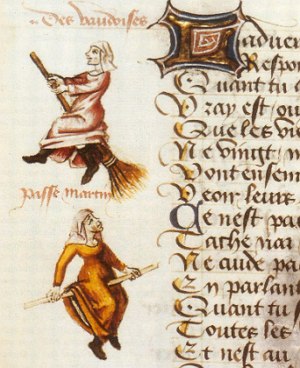 Des vaudoises
passe martin
Ladver
Respon
Quant tu
Vray est ou
Que les vie
Ne vingt n
Vont ensem
Veoir leurs
Ce nest pa
Tache nai
Ne aude pa
En parlant
Quant tu
Toutes les
Et nest au